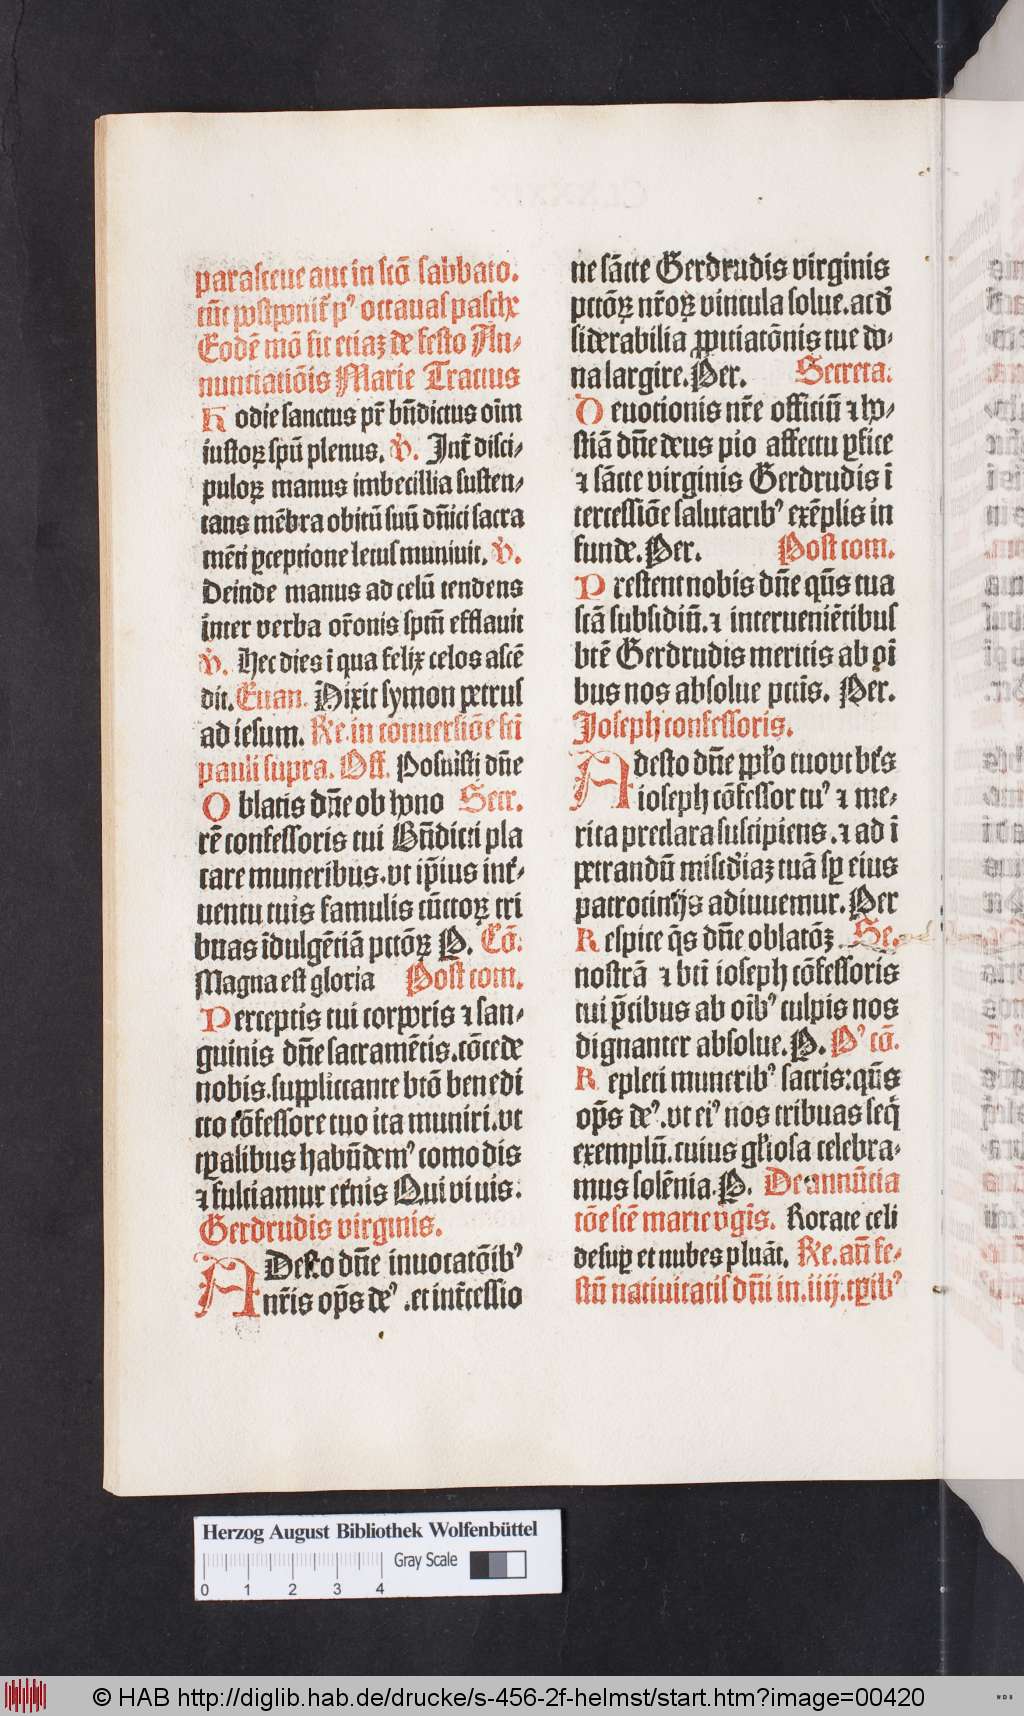 parasceue aut in scō sabbato.
tūc postponit᷑ pꝰ octauas pasche
Eodē mō fit etiaꝫ de festo An-
nunciatiōis Marie Tractus
Hodie sanctus pr̄ bn̄dictus oīm
iustoꝝ spū plenus. ℣. Int᷑ disci-
puloꝝ manus imbecillia susten-
tans mēbra obitū suū dn̄ici sacra
mēti ꝑceptione letus muniuit. ℣.
Deinde manus ad celū tendens
inter verba or̄onis spm̄ efflauit
℣. Hec dies ī qua felix celos ascē
dit. Euan. Dixit symon petrus
ad iesum. Re. in conuersiōe sc̄i
pauli supra. Off. Posuisti dn̄e
Oblatis dn̄e ob hono Secr.
rē confessoris tui Bn̄dicti pla
care muneribus. vt ip̄ius int᷑-
uentu tuis famulis cūctoꝝ tri
buas īdulgētiā pctōꝝ P. Cō.
Magna est gloria Post com.
Perceptis tui corporis ⁊ san-
guinis dn̄e sacramētis. cōcede
nobis. supplicante btō benedi
cto cōfessore tuo ita muniri. vt
tꝑalibus habūdemꝰ comodis
⁊ fulciamur et᷑nis Qui viuis.
Gerdrudis virginis.
ADesto dn̄e inuocatōibꝰ
nr̄is op̄s deꝰ. et int᷑cessio
ne sācte Gerdrudis virginis
pctōꝝ nr̄oꝝ vincula solue. ac d᷑
siderabilia ꝓpitiatōnis tue do-
na largire. Per. Secreta.
Deuotionis nr̄e officiū ⁊ ho-
stiā dn̄e deus pio affectu ꝑfice
⁊ sācte virginis Gerdrudis ī
tercessiōe salutaribꝰ exēplis in
funde. Per. Post com.
Prestent nobis dn̄e qn̄s tua
scā subsidiū. ⁊ interueniētibus
btē Gerdrudis meritis ab oī
bus nos absolue pctīs. Per.
Joseph confessoris.
Adesto dn̄e pplo tuo vt bt̄s
ioseph cōfessor tuꝰ ⁊ me-
rita preclara suscipiens. ⁊ ad ī
petrandū misc̄diaꝫ tuā sꝑ eius
patrocinijs adiuuemur. Per
Respice q̄s dn̄e oblatōꝫ Se.
nostrā ⁊ bt̄i ioseph cōfessoris
tui p̄cibus ab oībꝰ culpis nos
dignanter absolue. P. Pꝰ cō.
Repleti muneribꝰ sacris: qn̄s
op̄s deꝰ. vt eiꝰ nos tribuas seq̄
exemplū. cuius gl̄iosa celebra-
mus solēnia. P. De annūcia
tōe sc̄e marie vgīs. Rorate celi
desuꝑ et nubes pluāt. Re. an̄ fe-
stū natiuitatis dn̄i in. iiij. tꝑibꝰ
Herzog August Bibliothek Wolfenbüttel
Gray Scale
0 1 2 3 4
© HAB http://diglib.hab.de/drucke/s-456-2f-helmst/start.htm?image=00420